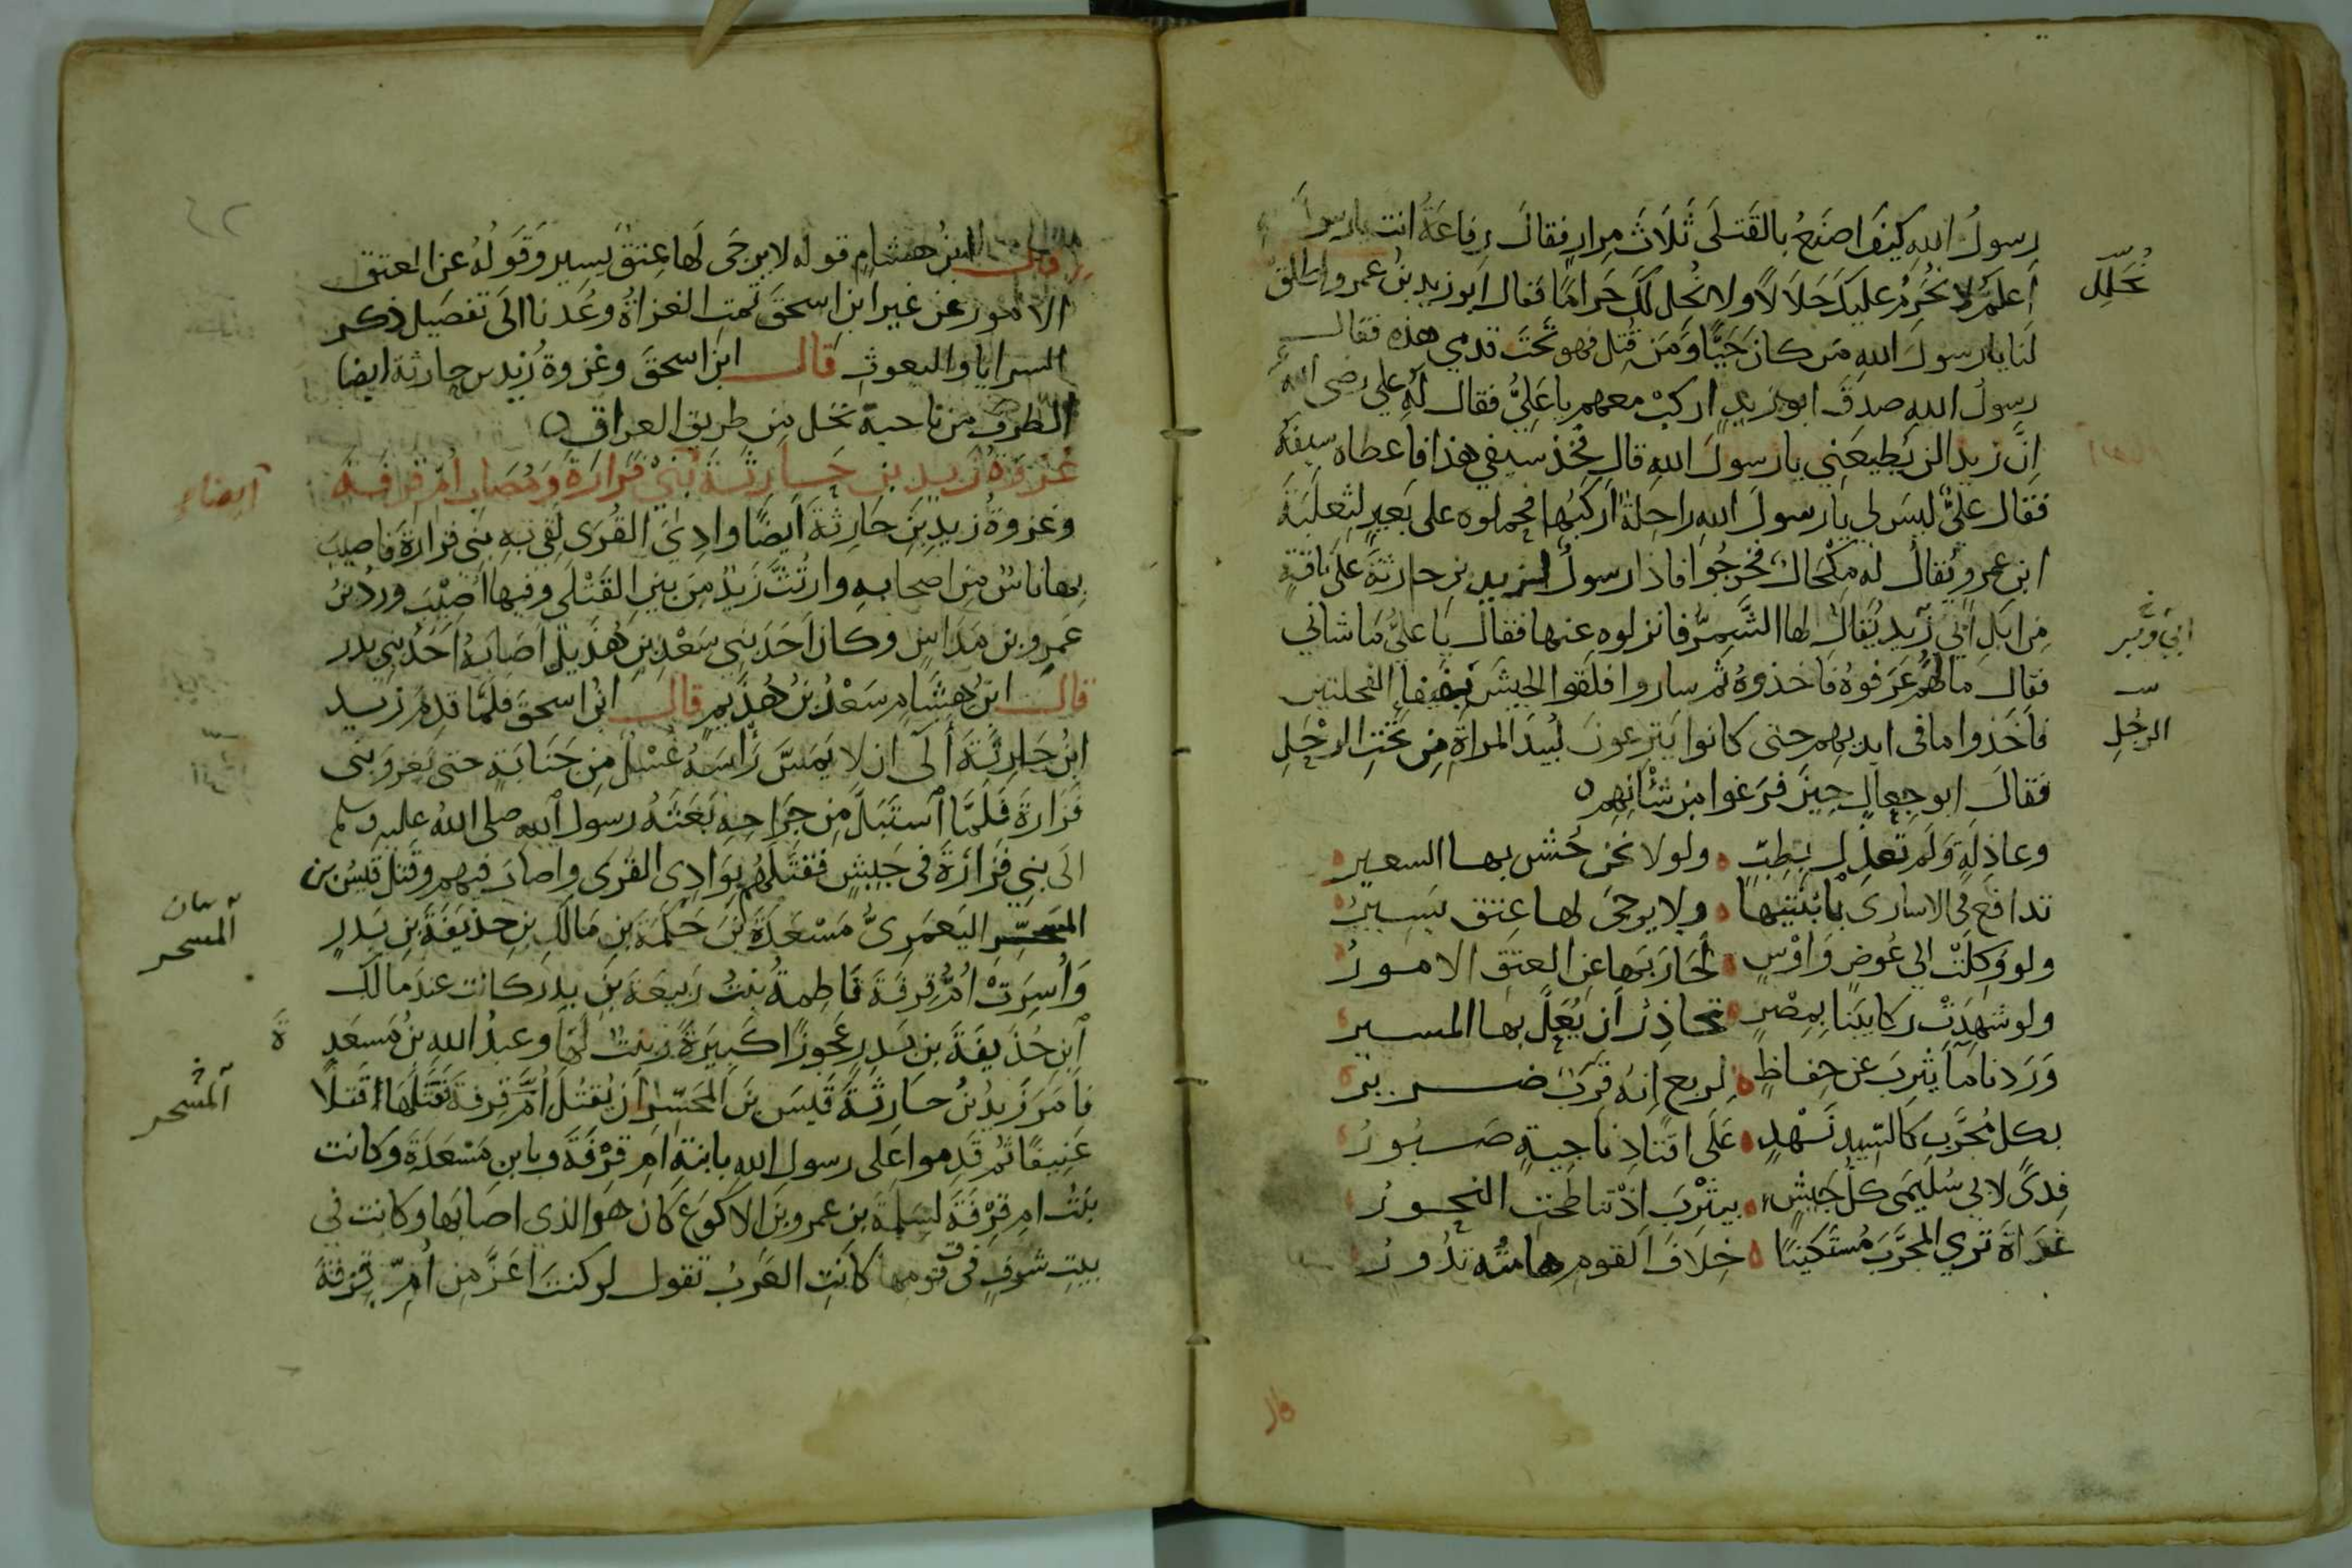 رسولُ الله كيفَ اصنَعُ بالقَتلَى ثَلاثَ مِرارٍ فقالَ رِفاعَةُ انت يارسول
اَعلَمُ لا نُحَرِّمُ عليكَ حَلَالًا ولا نُحِل لكَ حَرامًا فقال ابو زيدِ بنُ عمرو اطلق
نُحَلِّل
لَنا يا رسولَ اللهِ مَن كان حَيًّا وَمَن قُتِل فهو تَحْتَ قدمي هذه فقال
رسولُ اللهِ صدقَ ابو زيدٍ اركبْ معهم يا عَلِيُّ فقال لَهُ علي رضى الله
اِنَّ زيدا لن يُطيعَنِي يا رسولَ اللهِ قال فخُذ سَيفي هذا فاعطاه سيفَه
فقال عليٌّ ليسَ لي يا رسولَ اللهِ راحِلةٌ اركَبُها فحملوه على بَعيرٍ لثعلَبَةَ
ابن عمرٍو يُقالُ له مِكْحال فخرجُوا فاذا رسولٌ لزيد بن حارثةَ على ناقةٍ
مِن ابلِ ابي زيد يُقالُ لها الشَّمِرُ فانزلوه عنها فقالَ يَا عليُّ ما شاني
ابي وبر
فقال مالُهُم عَرَفوهُ فاخذوهُ ثم ساروا فلقوا الجيشَ بفيفا الفحلتين
فاَخَذوا ما فى ايديهم حتى كانوا ينزعونَ لُبَيدَ المراةِ مِن تحتِ الرحْلِ
الرحْلِ
فقالَ ابو جِعالٍ حِينَ فرَغوا مِن شَأنِهِم
وعاذِلَةٍ وَلَم تعذِل بِطِبٍّ ولولا نحن حُشّ بها السعير
تدافع في الاسارى بابْنَتَيْها ولا يُرجَى لها عِتق يَسِيرُ
ولو وُكِلَتْ الى عُوصٍ وَاوْسٍ لَحَارَ بها عن العتقِ الامورُ
ولو شهِدَتْ ركايبَنا بِمِصْرٍ تُحاذِرُ اَن يُعَلَّ بها المسير
وَرَدنا مآ يثرِبَ عن حِفاظٍ لربع انه قَرَبٌ ضرير
بكل مُجرَّبٍ كالسِّيدِ نَهْدٍ عَلَى اقتادِ ناجيةٍ صَبُورُ
فِدًى لابي سُلَيمَى كلُّ جَيْشٍ بيثْرِبَ اذْ تناطحتِ النحورُ
غَدَاةَ تري المجرَّبَ مُستَكينًا خِلافَ القومِ هامتُه تَدُورُ
قال ابنُ هشامٍ قوله لا يرجَى لَها عِتقٌ يسير وَقَولُهُ عن العتق
الامور عن غير ابن اسحقَ تمت الغزاةُ وعُدنا الَى تفصيل ذكر
السرايا والبعوث قال ابنُ اسحقَ وغزوة زيد بن حارثة ايضا
الطَرفَ من ناحية نخل مِن طريق العراق
غزوةُ زيد بن حَارثَةَ بَنِي فَزَارَةَ وَمُصاب اُمّ قِرفَةَ
ايضا
وغزوةُ زيدِ بنِ حَارِثةَ اَيضًا وادِيَ القُرَى لَقِيَ بِهِ بَنِي فزارةَ فاصيبَ
بها ناسٌ مِن اصحابِهِ وارتُثَّ زَيدٌ مِن بينِ القَتْلَى وفيها اُصيبَ وردُ بنُ
عَمرِو بن مَدَاسٍ وكان اَحَدَ بَنِي سَعْدِ بنِ هُذَيلٍ اَصَابَهُ اَحَدُ بنِي بدر
قال ابنُ هِشَامٍ سَعْدُ بنُ هُذَيمٍ قال ابنُ اسحقَ فلمَّا قدِمَ زيد
ابنُ حارِثَةَ آلَى ان لا يَمَسَّ رَاسَهُ غُسْلٌ مِن جَنَابَةٍ حتى يَغزوَ بنى
فَزارةَ فَلَمَّا استَبَلَّ مِن جِرَاحِهِ بَعَثَهُ رسول الله صلى اللهُ عليه وسلم
الَى بني فَزارَةَ فى جَيشٍ فقتَلَهُم بِوَادِى القُرَى واصابَ فيهم وقتل قَيسُ بن
المسحر اليَعمَرِىُّ مَسْعَدَةَ بنَ حَكَمَةَ بنِ مَالكِ بنِ حذيفَةَ بنِ بَدرٍ
المسحر
وَاُسِرَتْ اُمُّ قِرفَةَ فَاطِمةُ بِنتُ رَبيعَةَ بنِ بدر كانت عند مالك
ابنِ حُذيفَةَ بن بَدرٍ عَجوزًا كَبيرَةً وبنتٌ لَها وعبدُ اللهِ بنُ مَسعَدِ
ةَ
فاَمَرَ زَيدُ بنُ حارثةَ قَيسَ بنَ المُحَسّرِ اَن يَقتُلَ اُمَّ قِرفةَ فقتَلَها قَتلًا
المسحر
عَنيفًا ثم قدِموا عَلى رسول اللهِ بابنةِ ام قِرْفَةَ وبابنِ مَسْعَدَةَ وكانت
بنتُ ام قِرْفَةَ لسَلَمةَ بن عمرو بنَ الاكوَعِ كان هو الذي اصابَها وكانت في
بيتِ شرفٍ فى قومها كانتِ العَربُ تقول لو كنتَ اَعَزَّ مِن اُمِّ قِرفَةَ